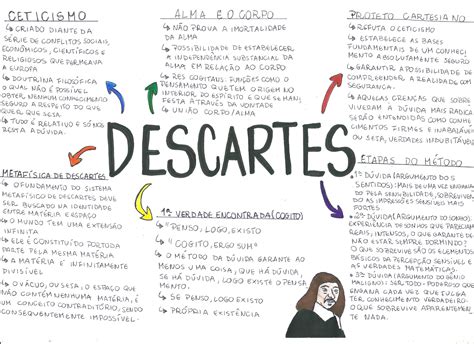 CETICISMO
↳ CRIADO DIANTE DA
SÉRIE DE CONFLITOS SOCIAIS,
ECONÔMICOS, CIENTÍFICOS E
RELIGIOSOS QUE PERMEAVA
A EUROPA
↳ DOUTRINA FILOSÓFICA
O QUAL NÃO É POSSÍVEL
OBTER, NENHUM CONHECIMENTO
SEGURO A RESPEITO DO QUE
QUER QUE SEJA.
↳ TUDO É RELATIVO E SÓ NOS
RESTA A DÚVIDA.
ALMA E O CORPO
↳ NÃO PROVA A IMORTALIDADE
DA ALMA
↳ POSSIBILIDADE DE ESTABELECER
A INDEPENDÊNCIA SUBSTANCIAL DA
ALMA EM RELAÇÃO AO CORPO
↳ RES COGITANS: FUNÇÕES COMO O
PENSAMENTO QUE TEM ORIGEM NO
INTERIOR DO ESPÍRITO E QUE SE MANI
FESTA ATRAVÉS DA VONTADE
↳ UNIÃO CORPO/ALMA
PROJETO CARTESIANO
↳ REFUTA O CETICISMO
↳ ESTABELECE AS BASES
FUNDAMENTAIS DE UM CONHECI
MENTO ABSOLUTAMENTE SEGURO
↳ GARANTIR A POSSIBILIDADE DE
COMPREENDER A REALIDADE COM
SEGURANÇA.
↳ AQUELAS CRENÇAS QUE SOBRE
VIVEREM A DÚVIDA MAIS RADICAL
SERÃO ESTABELECIDAS COMO CONHE
CIMENTOS FIRMES E INABALÁVEIS
OU SEJA, VERDADES INDUBITÁVEIS
DESCARTES
METAFÍSICA DE DESCARTES
↳ O FUNDAMENTO DO SISTEMA
METAFÍSICO DE DESCARTES DEVE
SER BUSCADO NA IDENTIDADE
ENTRE MATÉRIA E ESPAÇO
↳ O MUNDO TEM UMA EXTENSÃO
INFINITA
↳ ELE É CONSTITUÍDO POR TODA
PARTE PELA MESMA MATÉRIA
↳ A MATÉRIA É INFINITAMENTE
DIVISÍVEL
↳ O VÁCUO, OU SEJA, O ESPAÇO QUE
NÃO CONTÉM NENHUMA MATÉRIA, É
UM CONCEITO CONTRADITÓRIO, SENDO
CONSEQUENTEMENTE IMPOSSÍVEL.
1ª VERDADE ENCONTRADA (COGITO)
↳ "PENSO, LOGO, EXISTO
↳ "COGITO, ERGO SUM"
↳ O MÉTODO DA DÚVIDA GARANTE AO
MENOS UMA COISA, QUE HÁ DÚVIDA,
SE HÁ DÚVIDA, LOGO EXISTE O PENSA
MENTO.
↳ SE PENSO, LOGO EXISTO
↳ PRÓPRIA EXISTÊNCIA
ETAPAS DO MÉTODO
↳ 1ª DÚVIDA (ARGUMENTO DOS 5
SENTIDOS): MAIS DE UMA VEZ
PELA SENSIBILIDADE, SOBREVIVE
AS IMPRESSÕES SENSÍVEIS MAIS
FORTES
↳ 2ª DÚVIDA (ARGUMENTO DO SONHO)
EXPERIÊNCIA DE SONHOS QUE PARECIAM
REAIS, INTENSOS, O QUE GARANTE DE
NÃO ESTAR SEMPRE DORMINDO?
O QUE SOBREVIVE SÃO OS ELEMENTOS
BÁSICOS DA PERCEPÇÃO SENSÍVEL E
AS VERDADES MATEMÁTICAS.
↳ 3ª DÚVIDA (ARGUMENTO DO GÊNIO
MALIGNO): SER TODO-PODEROSO QUE
ENGANA CADA VEZ QUE TULGAR
TER, CONHECIMENTO VERDADEIRO.
O QUE SOBREVIVE APARENTEMEN
TE NADA.